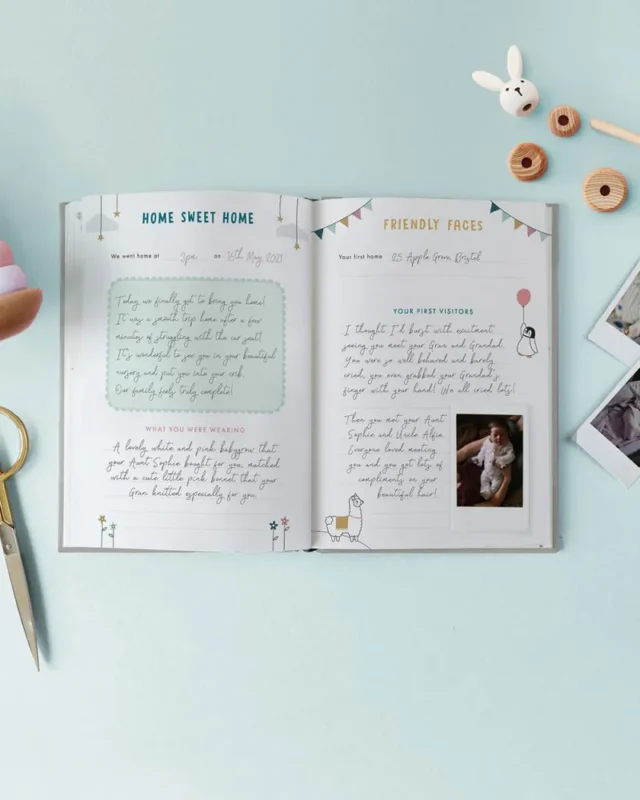 HOME SWEET HOME
We went home at 3pm on 16th May 2021
Today we finally got to bring you home!
It was a smooth trip home after a few
minutes of struggling with the car seat!
It's wonderful to see you in your beautiful
nursery and put you into your crib.
Our family feels truly complete!
WHAT YOU WERE WEARING
A lovely white and pink babygrow that
your Aunt Sophie bought for you, matched
with a cute little pink bonnet that your
Gran knitted especially for you.
FRIENDLY FACES
Your first home 25 Apple Grove, Bristol
YOUR FIRST VISITORS
I thought I'd burst with excitment
seeing you meet your Gran and Grandad.
You were so well behaved and barely
cried, you even grabbed your Grandad's
finger with your hand! We all cried lots!
Then you met your Aunt
Sophie and Uncle Alfie.
Everyone loved meeting
you and you got lots of
compliments on your
beautiful hair!